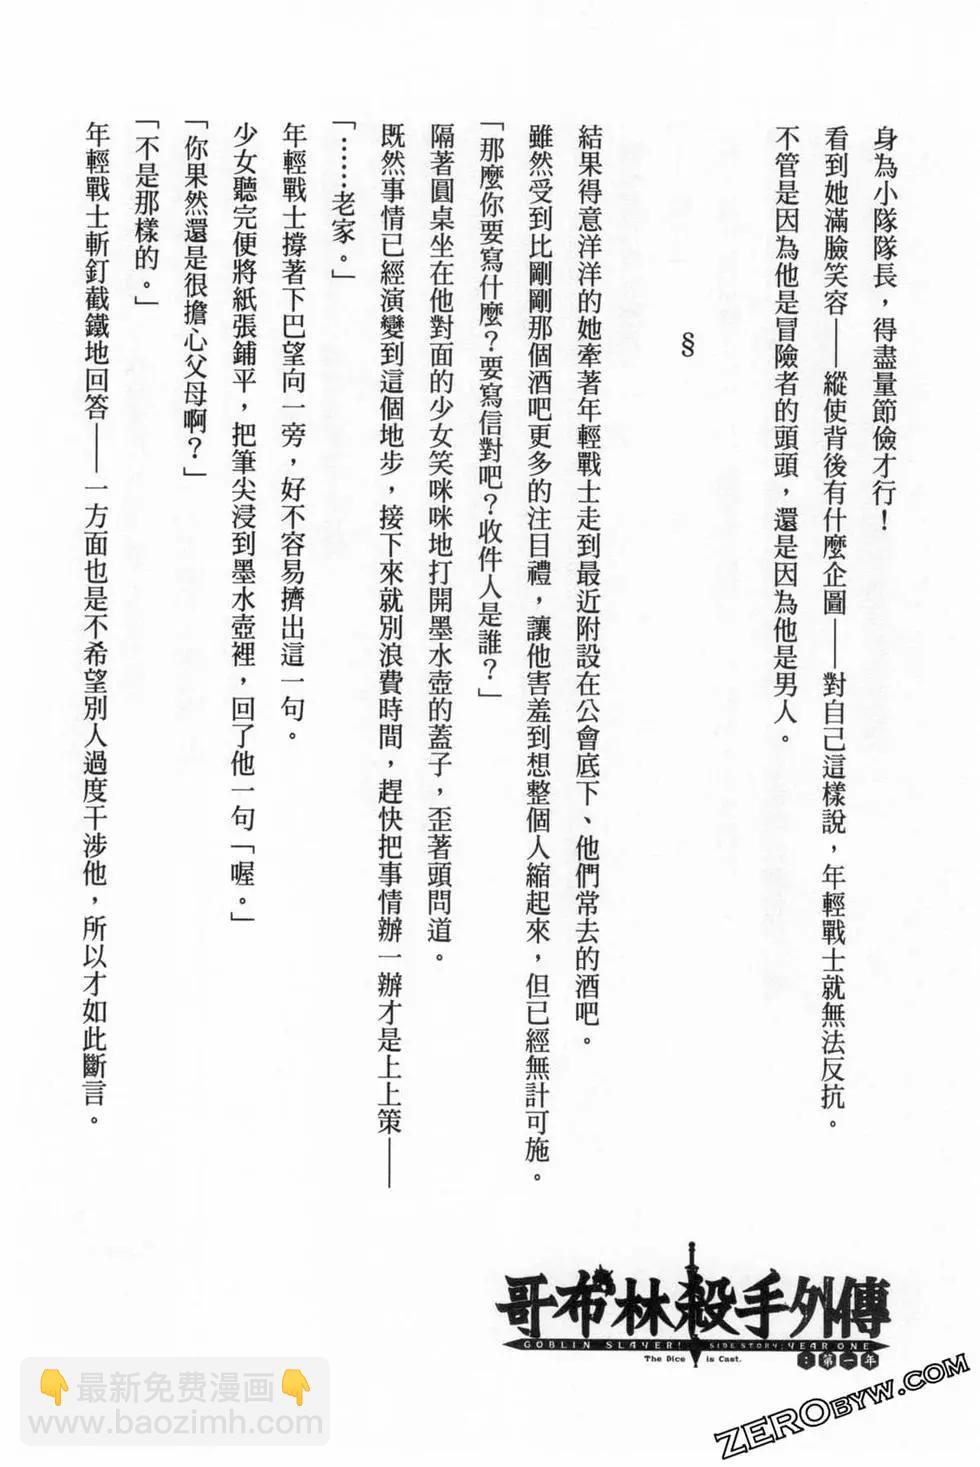 身為小隊隊長，得盡量節儉才行！
看到她滿臉笑容——縱使背後有什麼企圖——對自己這樣說，年輕戰士就無法反抗。
不管是因為他是冒險者的頭頭，還是因為他是男人。
§
結果得意洋洋的她牽著年輕戰士走到最近附設在公會底下、他們常去的酒吧。
雖然受到比剛剛那個酒吧更多的注目禮，讓他害羞到想整個人縮起來，但已經無計可施。
「那麼你要寫什麼？要寫信對吧？收件人是誰？」
隔著圓桌坐在他對面的少女笑咪咪地打開墨水壺的蓋子，歪著頭問道。
既然事情已經演變到這個地步，接下來就別浪費時間，趕快把事情辦一辦才是上上策——
「……老家。」
年輕戰士撐著下巴望向一旁，好不容易擠出這一句。
少女聽完便將紙張鋪平，把筆尖浸到墨水壺裡，回了他一句「喔。」
「你果然還是很擔心父母啊？」
「不是那樣的。」
年輕戰士斬釘截鐵地回答——一方面也是不希望別人過度干涉他，所以才如此斷言。
哥布林殺手外傳
GOBLIN SLAYER! SIDE STORY: YEAR ONE
The Dice is Cast.
：第一年
最新免费漫画
www.baozimh.com
ZEROBYW.COM